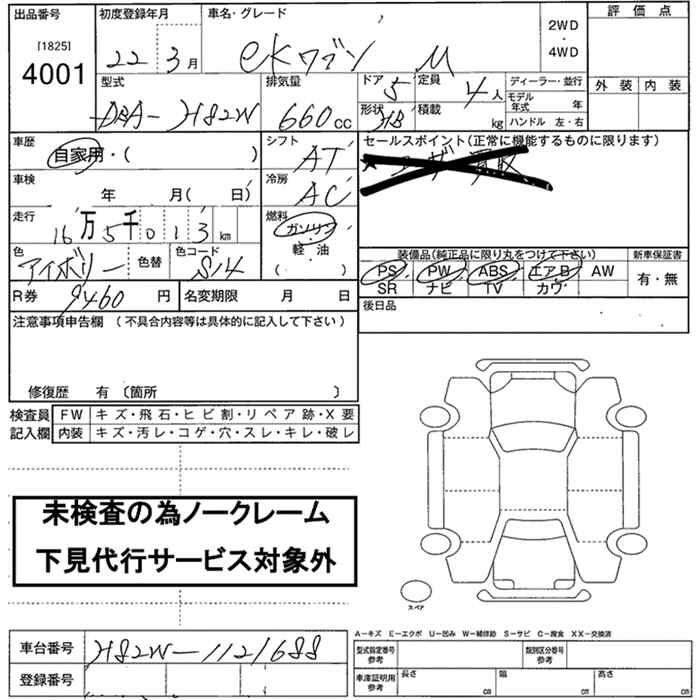 出品番号
[1825]
4001
初度登録年月
22 3 月
車名・グレード
eKワゴン M
2WD
・
4WD
評価点
外装 内装
型式
DBA-H82W
排気量
660 cc
ドア 5
形状 HB
定員 4 人
積載 kg
ディーラー・並行
モデル年式 年
ハンドル 左・右
車歴
自家用・( )
シフト
AT
セールスポイント(正常に機能するものに限ります)
車検
年 月( 日)
冷房
AC
走行
16万5千013 km
燃料
ガソリン
・
軽・油
( )
色
アイボリー
色替
色コード
S14
装備品(純正品に限り丸をつけて下さい)
PS PW ABS エアB AW
SR ナビ TV カワ
新車保証書
有・無
R券 9460 円
名変期限 月 日
後日品
注意事項申告欄 (不具合内容等は具体的に記入して下さい)
修復歴 有 〔箇所 〕
検査員記入欄
FW キズ・飛石・ヒビ割・リペア跡・X要
内装 キズ・汚レ・コゲ・穴・スレ・キレ・破レ
未検査の為ノークレーム
下見代行サービス対象外
スペア
A-キズ E-エクボ U-凹み W-補修跡 S-サビ C-腐食 XX-交換済
車台番号 H82W-1121688
登録番号
型式指定番号 参考
類別区分番号 参考
車庫証明用 参考
長さ cm
幅 cm
高さ cm